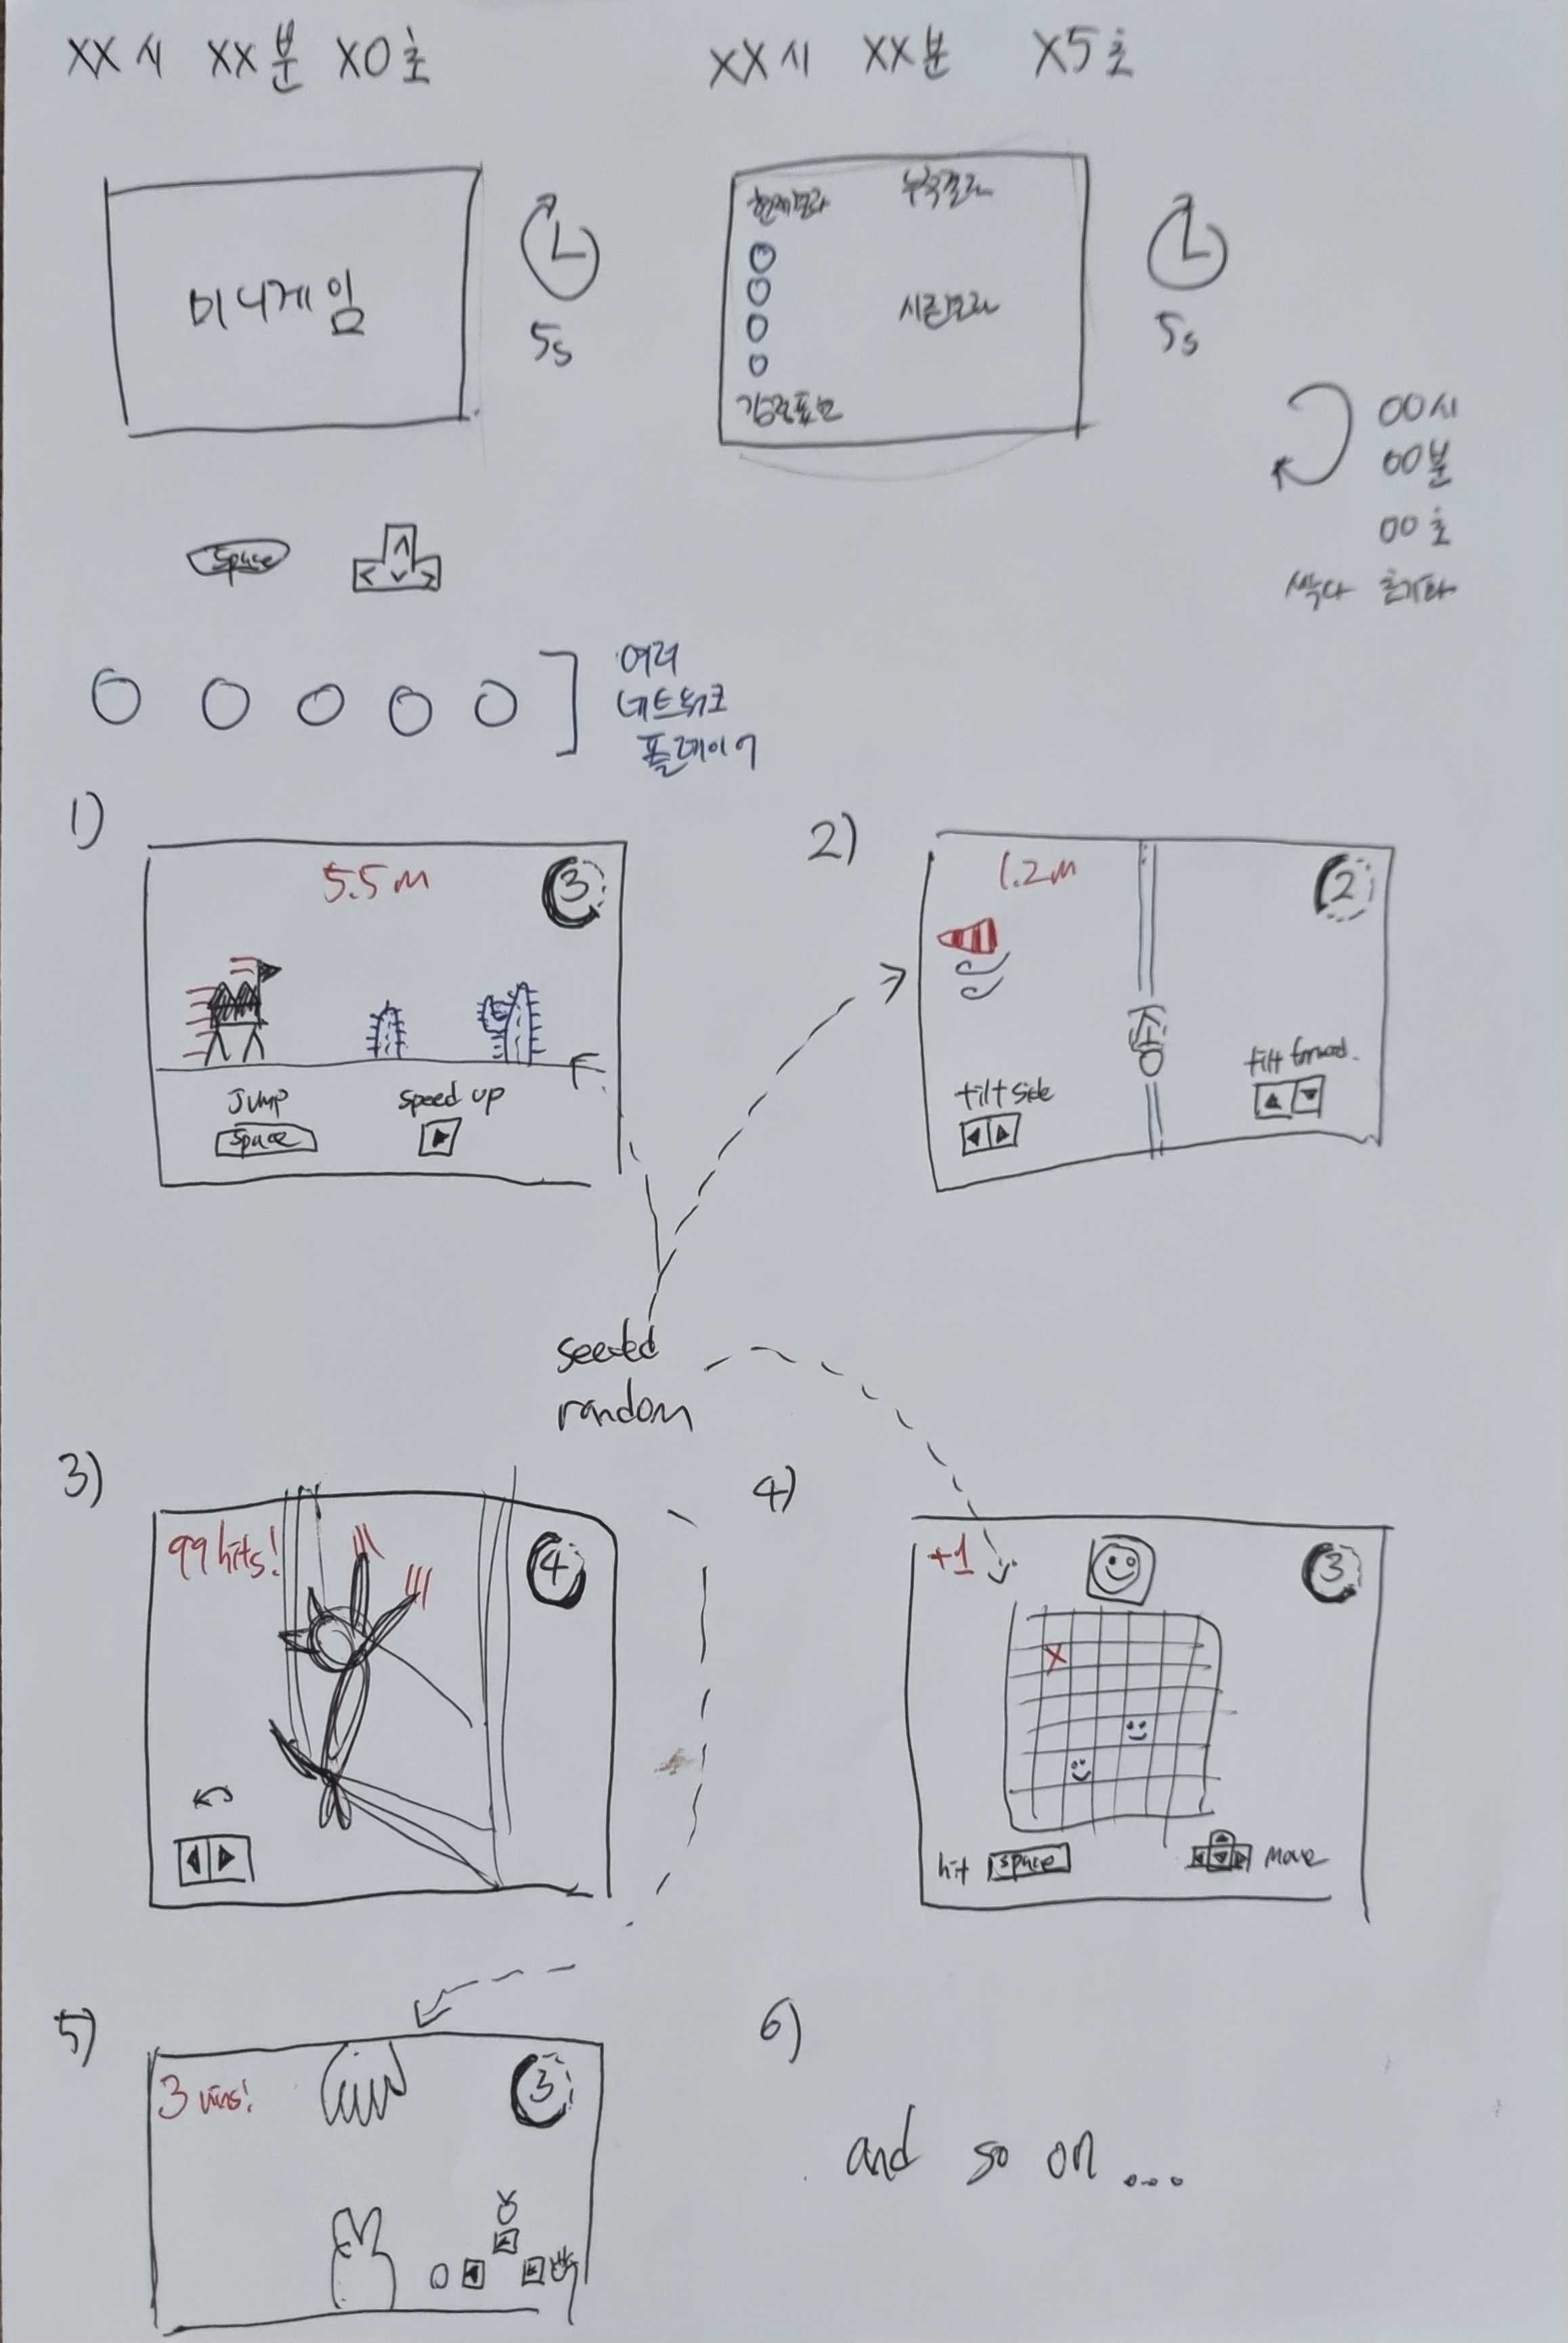 XX시 XX분 X0초
XX시 XX분 X5초
미니게임
5s
현재결과
누적결과
시즌결과
5s
00시
00분
00초
싹다 초기화
space
여러
네트워크
플레이어
1)
5.5m
3
Jump
space
speed up
2)
1.2m
2
tilt side
tilt forward.
seeded
random
3)
99 hits!
4
4)
+1
3
X
hit space
move
5)
3 wins!
3
6)
and so on...